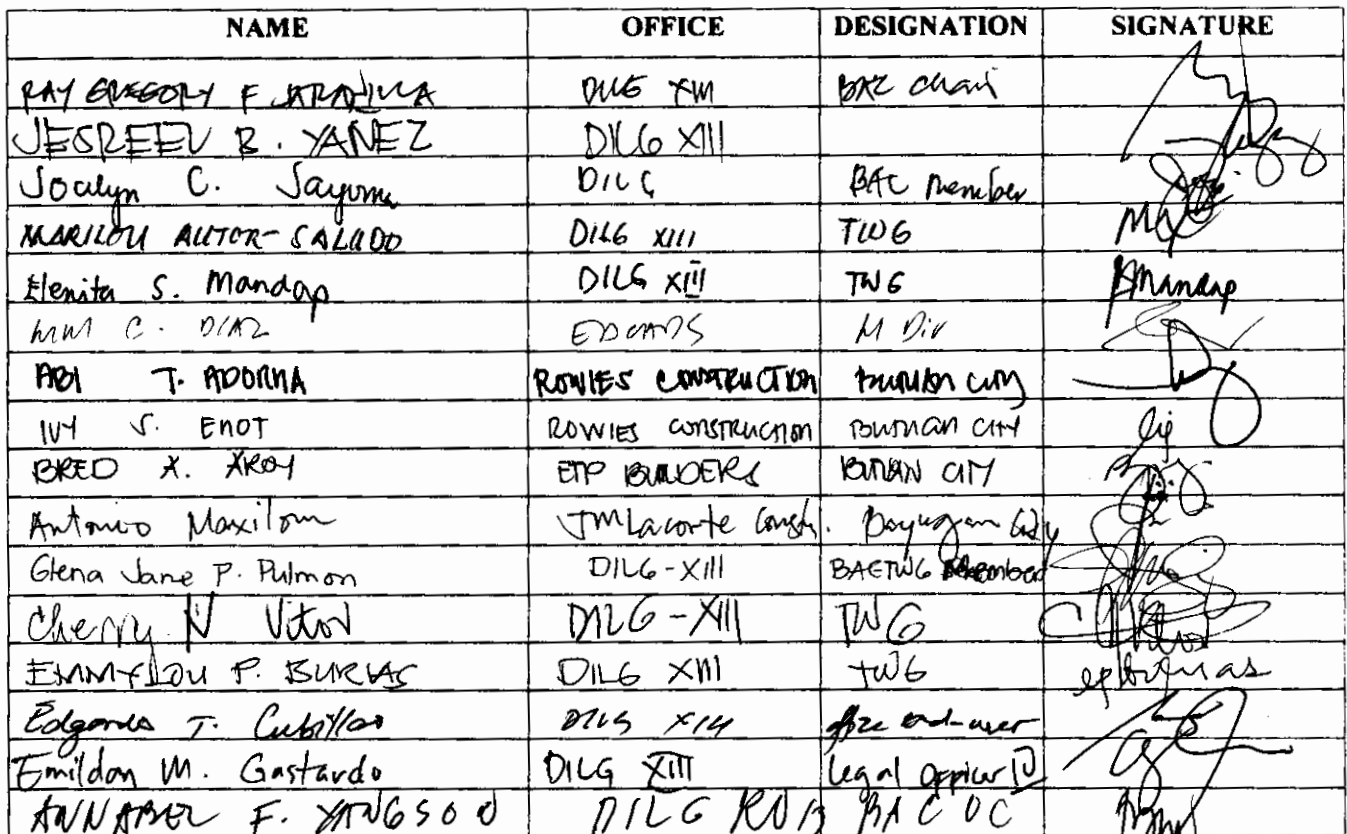 NAME OFFICE DESIGNATION SIGNATURE
RAY GREGORY F. JARANILLA DILG XIII BAC Chair
JESREEL B. YAÑEZ DILG XIII
Jocelyn C. Jayoma DILG BAC Member
MARILOU AUTOR-SALUDO DILG XIII TWG
Elenita S. Mandap DILG XIII TWG EMandap
C. DIAZ
ABI T. ADORNA ROWIES CONSTRUCTION BUTUAN CITY
IVY S. ENOT ROWIES CONSTRUCTION BUTUAN CITY
BRED A. AROY ETP BUILDERS BUTUAN CITY
Antonio Maxilom JMLacorte Constr. Bayugan City
Glena Jane P. Pulmon DILG-XIII BACTWG Member
Cherry N Vitor DILG-XIII TWG
EMMYLOU P. BURIAS DILG XIII TWG epburias
Edgardo T. Cubillas DILG XIII end-user
Emildon M. Gastardo DILG XIII Legal Officer IV
ANNABEL F. YANGSON DILG R013 BAC OC